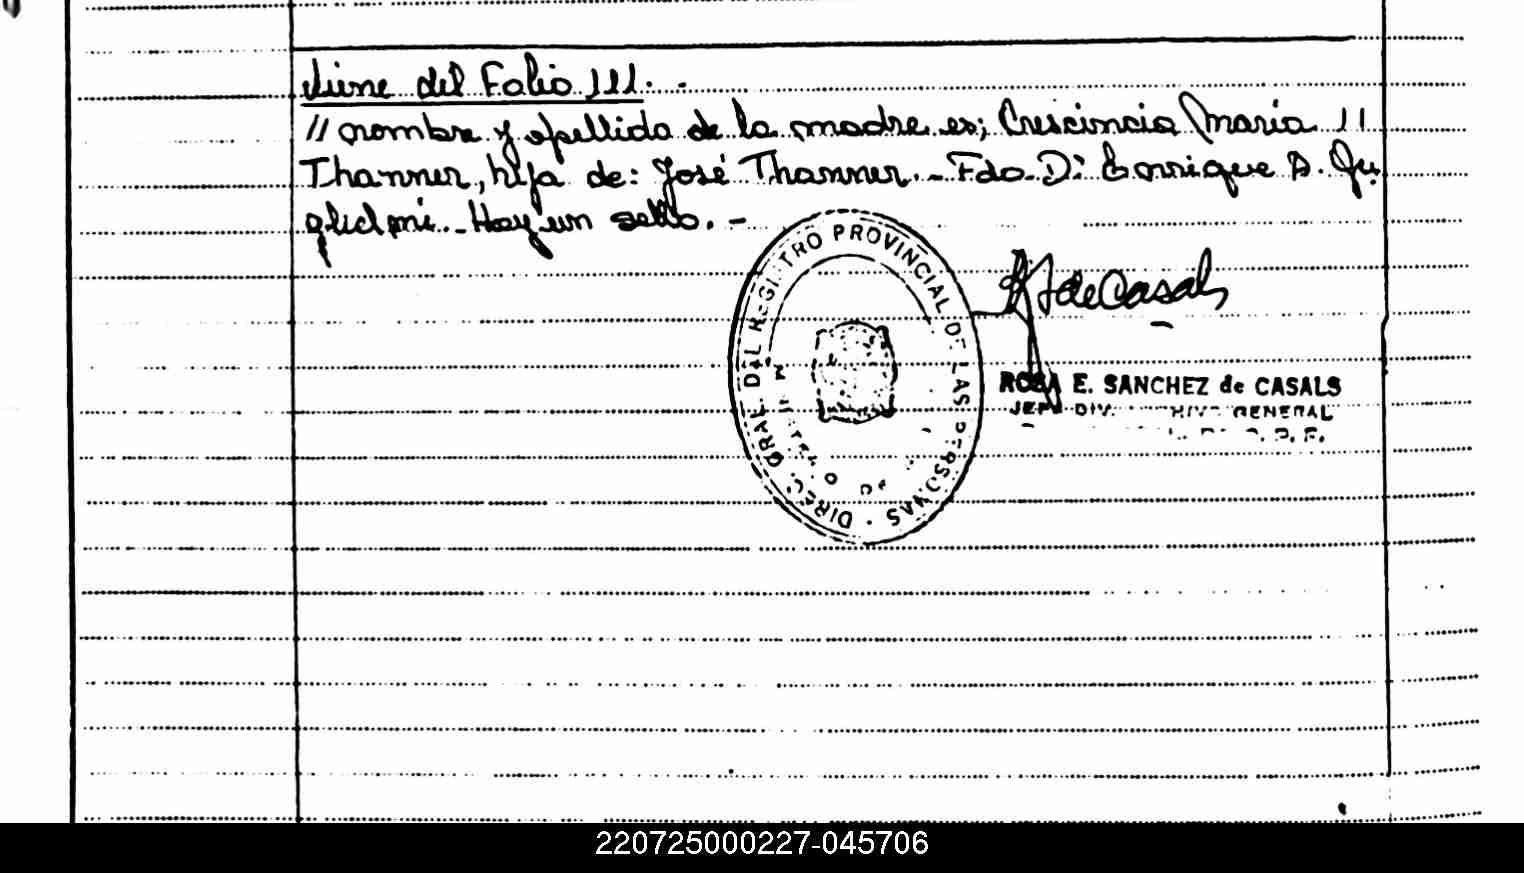 Viene del Folio 111. -
// nombre y apellido de la madre es; Crescincia María //
Thanner, hija de: José Thanner. - Fdo. D: Enrique A. Gu
glielmi. - Hay un sello. -
DIREC. GRAL. DEL REGISTRO PROVINCIAL DE LAS PERSONAS
de Casals
ROSA E. SANCHEZ de CASALS
JEFE DIV. ARCHIVO GENERAL
220725000227-045706